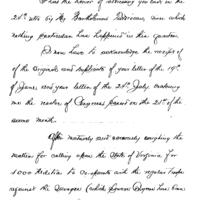 I had the honor of addressing you last on the
24th ulto by Mr Bartholomew since which
nothing particular has happened in this quarter.
I now have to acknowledge the receipt of
of the originals and duplicate of your letter of the 19th
of June and your letter of the 24th July enclosing
me the resolve of Congress passed on the 21st of the
same month.
After maturely and seriously weighing the
matter for calling upon the State of Virginia for
1000 Militia to co-operate with the regular Troops
against the Savages (which Govern Bryan